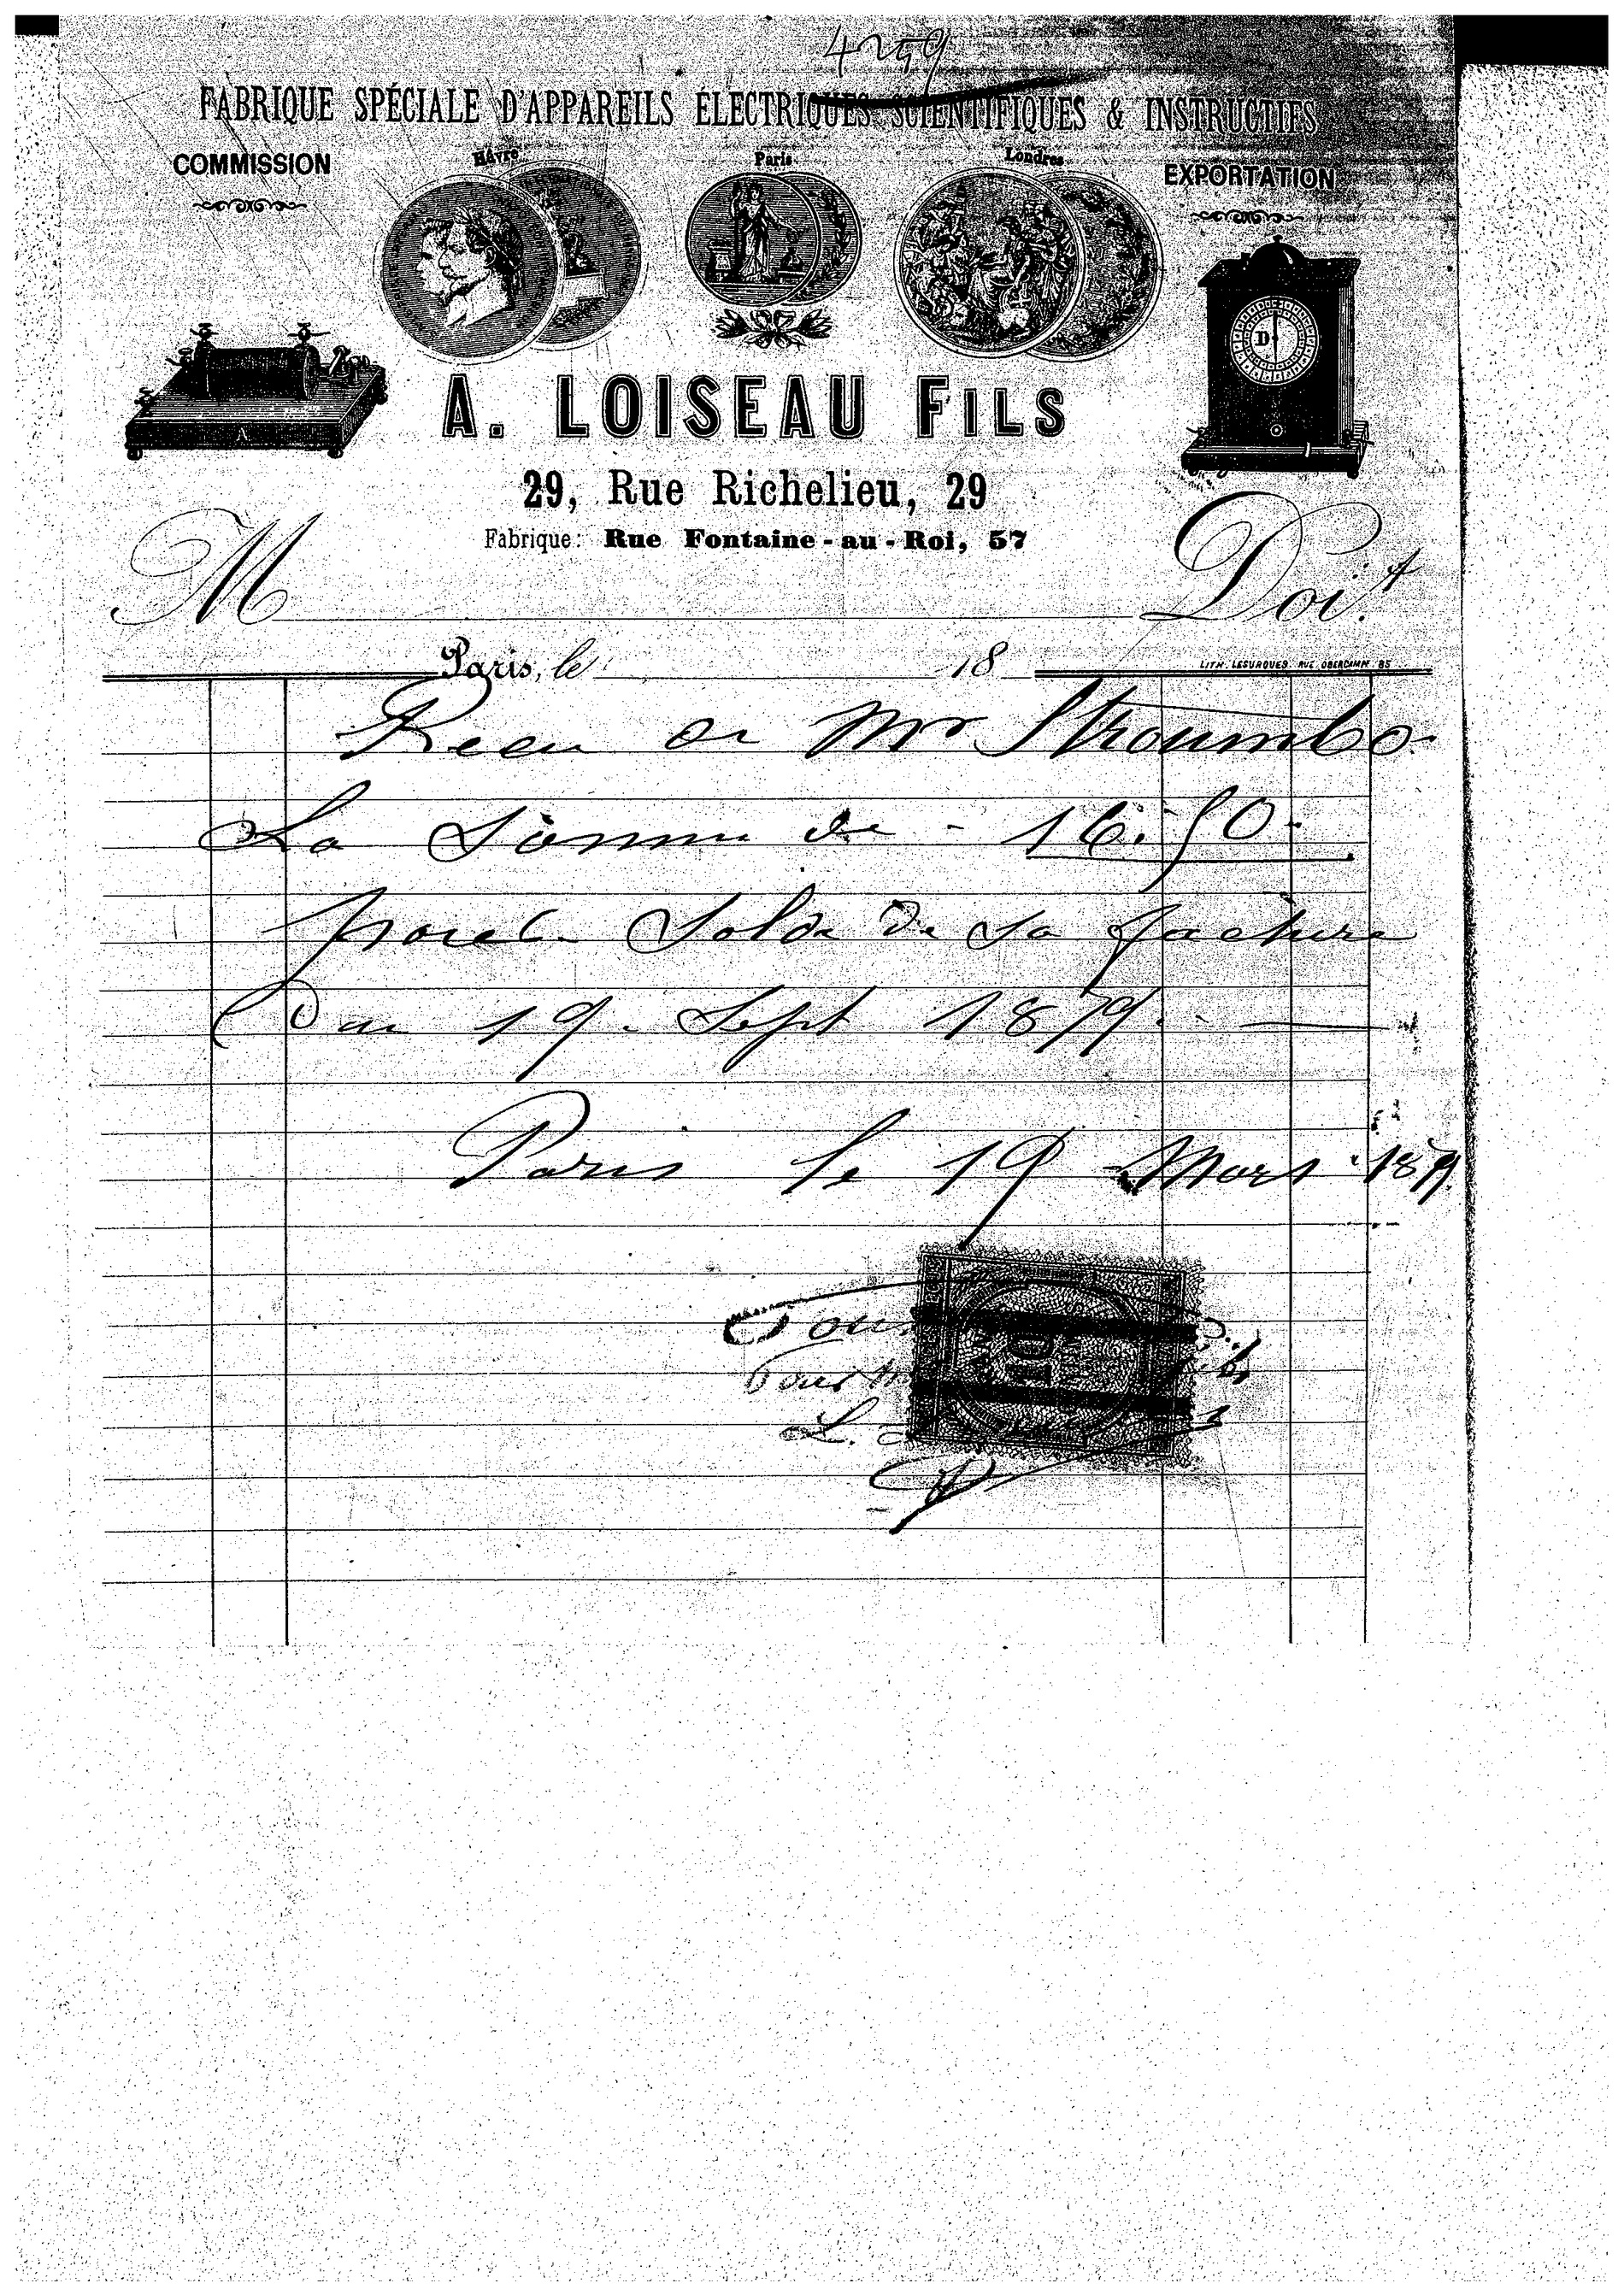 4259
FABRIQUE SPÉCIALE D'APPAREILS ÉLECTRIQUES SCIENTIFIQUES & INSTRUCTIFS
COMMISSION
Hâvre
Paris
Londres
EXPORTATION
D
A
A. LOISEAU FILS
29, Rue Richelieu, 29
Fabrique: Rue Fontaine-au-Roi, 57
M Doit
Paris, le 18
LITH. LESURQUES RUE OBERCAMPF 85
Recu de Mr Stroumbo
La Somme de - 16.50-
pour Solde de Sa facture
Du 19 Sept 1879
Paris le 19 Mars 187
Pour
10
L.